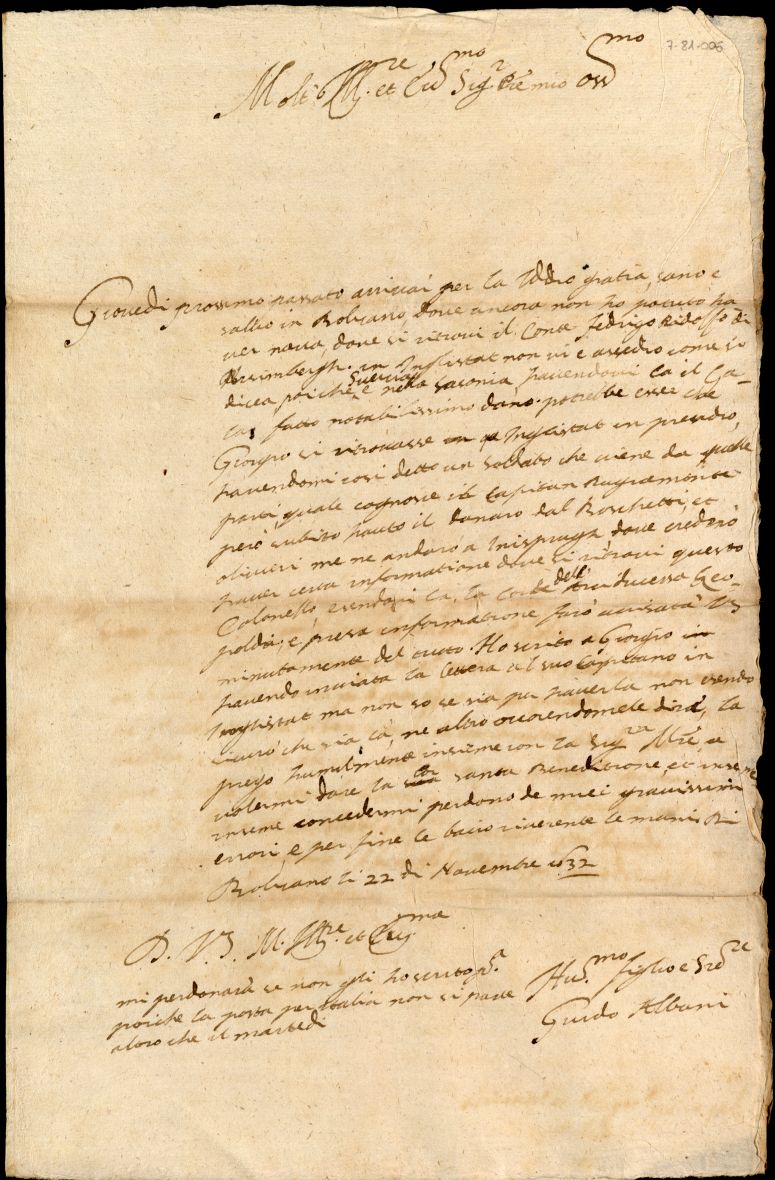 7-81-006
Molt'Ill.re et Ecc.mo Sig.r Pre mio oss.mo
Giovedi prossimo passato arrivai per la Iddio gratia, sano e
salvo in Bolzano, dove ancora non ho potuto ha
ver nova, dove si ritrovi il Conte Fedrigo Ridolfo di
in Inglistat non vi e assedio come si
dicea, poiche Suezia e nella Sasonia, havendovi la il Ga-
las fatto notabilissimo dano. potrebbe esser che
Giorgio si ritrovasse in Inglistat in presidio,
havendomi cosi detto un soldato che viene da quelle
parti, quale cognosce il Capitan
pero subito hauto il danaro dal Boschetti, et
me ne andarò a Inspruch, dove crederò
haver certa informatione dove si ritrovi questo
Colonello, esendovi la, la Corte dell' Arciducessa Leo-
polda, e presa informatione farò avisata VS
minutamente del tutto. Ho scrito a Giorgio in
havendo inviata la lettera al suo Capitano in
Inglistat ma non so se sia per haverla non esendo
sicuro che sia la, ne altro ocorendomele dirà, la
prego humilmente insieme con la Sig.ra M.re, a
volermi dare la santa Beneditione, et inseme
inseme concedermi perdono de miei gravissimi
errori, e per fine le bacio riverente le mani Di
Bolzano li 22 di Novembre 1632
D. V.S. M. Ill.re et Ecc.ma
mi perdonarà se non gli ho scrito p.a
poiche la posta per Italia non si parte
altro che il martedi
Hu.mo figlio e Ser.re
Guido Albani